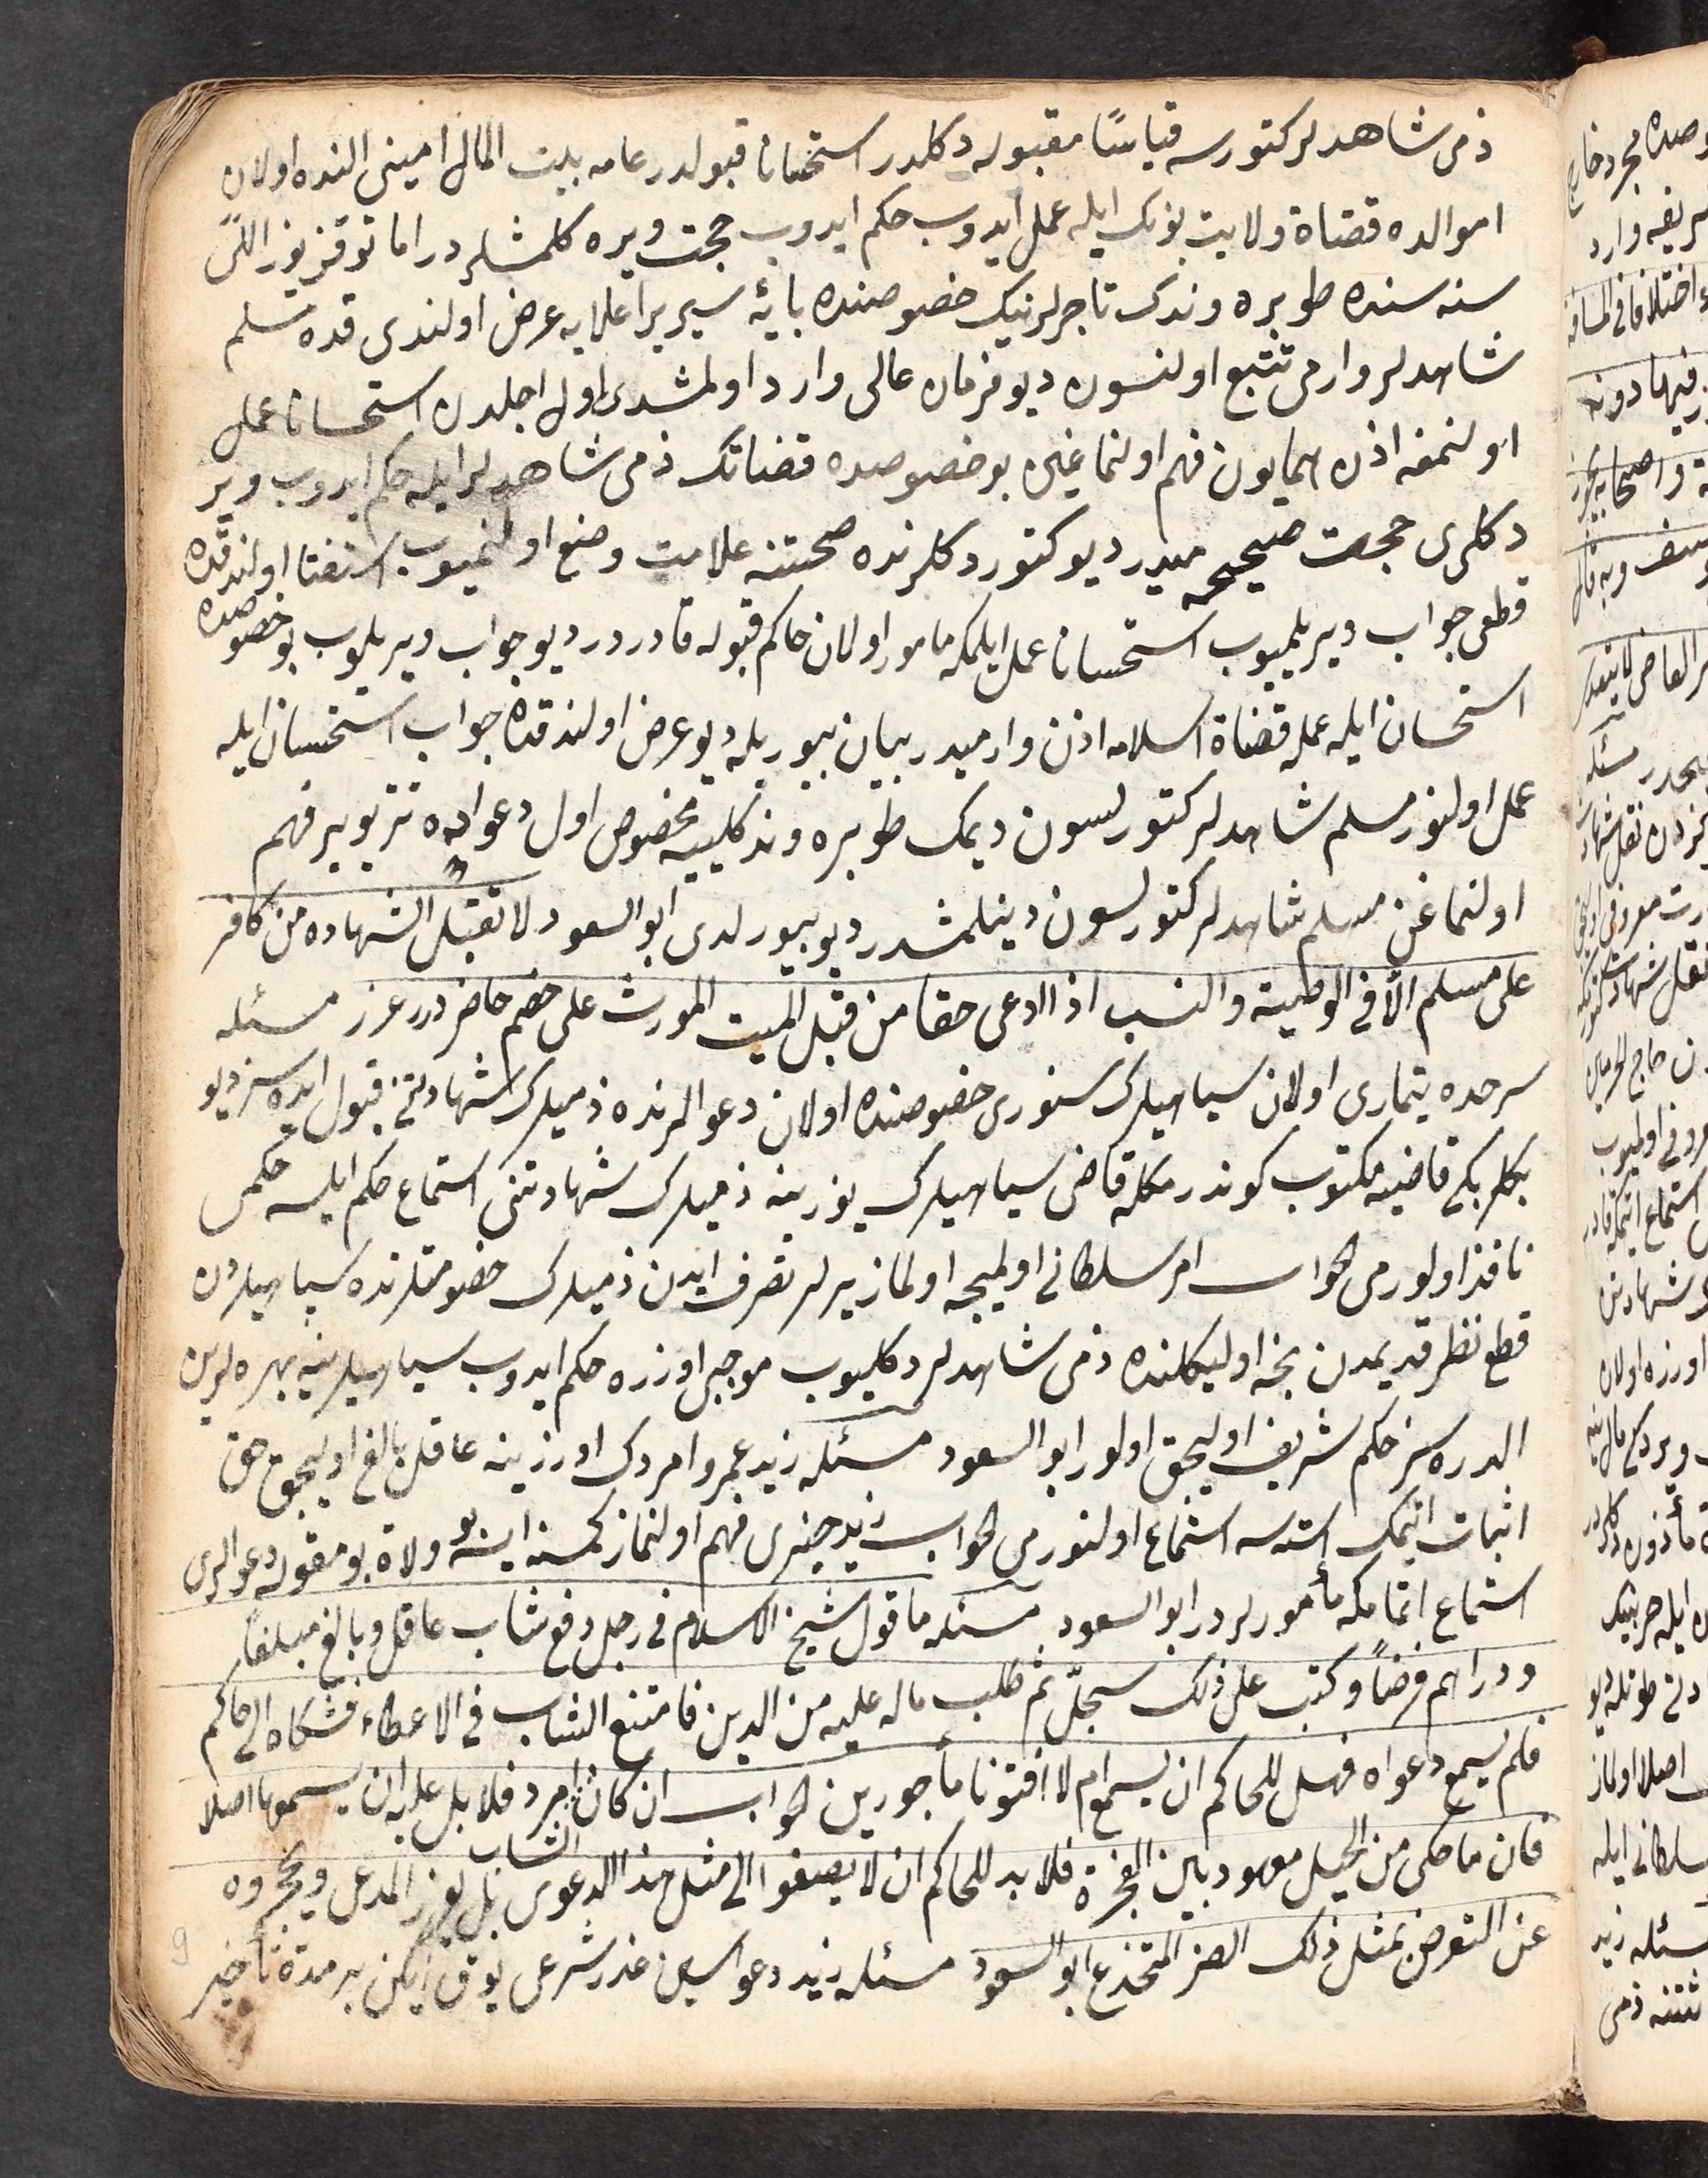 ذمی شاهدلر کتورسه قیاسًا مقبوله دکلدر استحسانا قبولدر عامه بیت المال امینی النده اولان
اموالده قضاة ولایت بونک ایله عمل ایدوب حکم ایدوب حجت ویره کلمشلردر اما توقز یوز اللی
سنه سنده طوبره وندک تاجرلرینک خصوصنده پایهٔ سریر اعلایه عرض اولندی قده مسلم
شاهدلر وارمی تتبع اولنسون دیو فرمان عالی وارد اولمشدی اول اجلدن استحسانا عمل
اولنمغه اذن همایون فهم اولنمایغین بو خصوصده قضاتک ذمی شاهدلر ایله حکم ایدوب ویر
دکلری حجت صحیحه میدر دیو کتوردکلرنده صحتنه علامت وضع اولنمیوب استفتا اولندقده
قطعی جواب ویریلمیوب استحسانا عمل ایلمکه مامور اولان حاکم قبوله قادردر دیو جواب ویریلوب بو خصوصده
استحسان ایله عمله قضاة اسلامه اذن وارمیدر بیان بیوریله دیو عرض اولندقده جواب استحسان ایله
عمل اولنور مسلم شاهدلر کتورلسون دیمک طوبره وندکلییه مخصوص اول دعواده تزویر فهم
اولنماغن مسلم شاهدلر کتورلسون دینلمشدر دیو بیورلدی ابو السعود لا تقبل الشهاده من کافر
علی مسلم الا فی الوصیة والنسب اذا ادعی حقا من قبل المیت المورث علی خصم حاضر درر غرر مسئله
سرحده تیماری اولان سپاهیلرک سنوری خصوصنده اولان دعوالرنده ذمیلرک شهادتنی قبول ایده سز دیو
بکلربکی قاضیه مکتوب کوندرمکله قاضی سپاهیلرک یوزینه ذمیلرک شهادتنی استماع حکم ایلسه حکمی
نافذ اولورمی الجواب امر سلطانی اولمیجه اولماز یرلر تصرف ایدن ذمیلرک خصومتلرنده سپاهیلردن
قطع نظر قدیمدن نجه اولیکلنده ذمی شاهدلر دکلیوب موجبی اوزره حکم ایدوب سپاهیلرینه بهره لرین
الدره سز حکم شریف اولیجق اولور ابو السعود مسئله زید عمرو امردک اوزرینه عاقل بالغ اولیجق حق
اثبات اتمک استسه استماع اولنورمی الجواب زید خیری فهم اولنماز کمسنه ایسه ولاة بو مقوله دعوالری
استماع اتمامکه مأمورلردر ابو السعود مسئله ما قول شیخ الاسلام فی رجل دفع شاب عاقل وبالغ مبلغاً
ودراهم قرضاً وکتب علی ذلک سجلّ ثم طلب ماله علیه من الدین فامتنع الشاب فی الاعطاء فشکاه الی حاکم
فلم یسمع دعواه فهل للحاکم ان یسمع ام لا افتونا مأجورین الجواب ان کان الشاب امرد فلا بل علیه ان یسمعها اصلا
فان ما حکی من الحیل معهود بین الفجرة فلا بد للحاکم ان لا یصغوا الی مثل هذا الدعوی بل یعزر المدعی ویزجروه
عن التعرض بمثل ذلک ابو السعود مسئله زید دعواسین عذر شرعی یوق ایکن بر مدة تأخیر